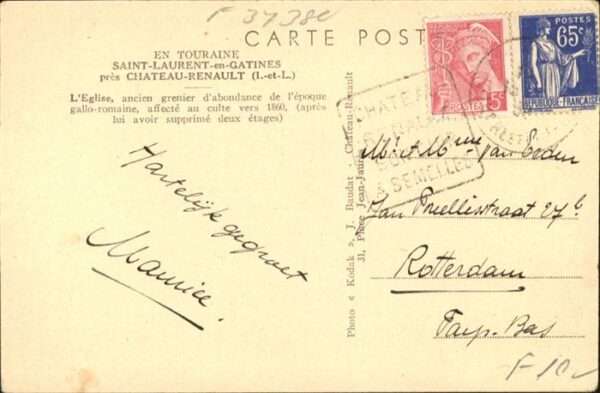 F 3438c
CARTE POST
EN TOURAINE
SAINT-LAURENT-en-GATINES
près CHATEAU-RENAULT (I.-et-L.)
L'Eglise, ancien grenier d'abondance de l'époque
gallo-romaine, affecté au culte vers 1860, (après
lui avoir supprimé deux étages)
Hartelijk gegroet
Maurice.
Photo « Kodak », J. Baudat - Château-Renault
31, Place Jean-Jaurès
POSTES
5c
POSTES
65c
REPUBLIQUE FRANÇAISE
CHATEAU
SEMELLES
M. et Mme van
Jan 27 b
Rotterdam
Pays-Bas